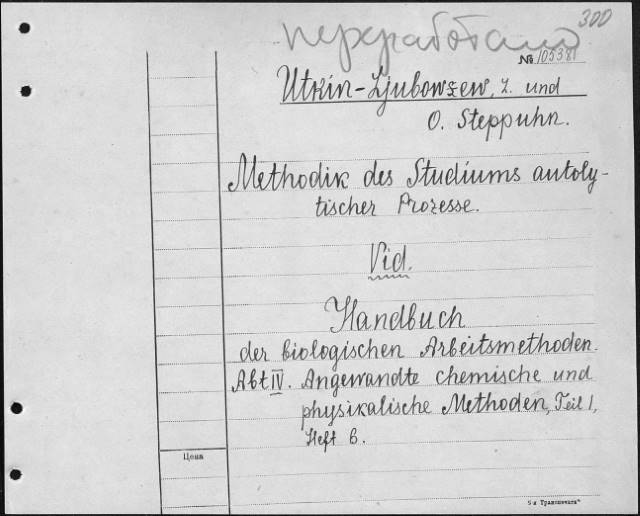 300
переработано
№ 105381
Utkin-Ljubowzew, L. und
O. Steppuhn.
Methodik des Studiums autoly-
tischer Prozesse.
Vid.
Handbuch
der biologischen Arbeitsmethoden.
Abt IV. Angewandte chemische und
physikalische Methoden, Teil 1,
Heft 6.
Цена
5-я Транспечать